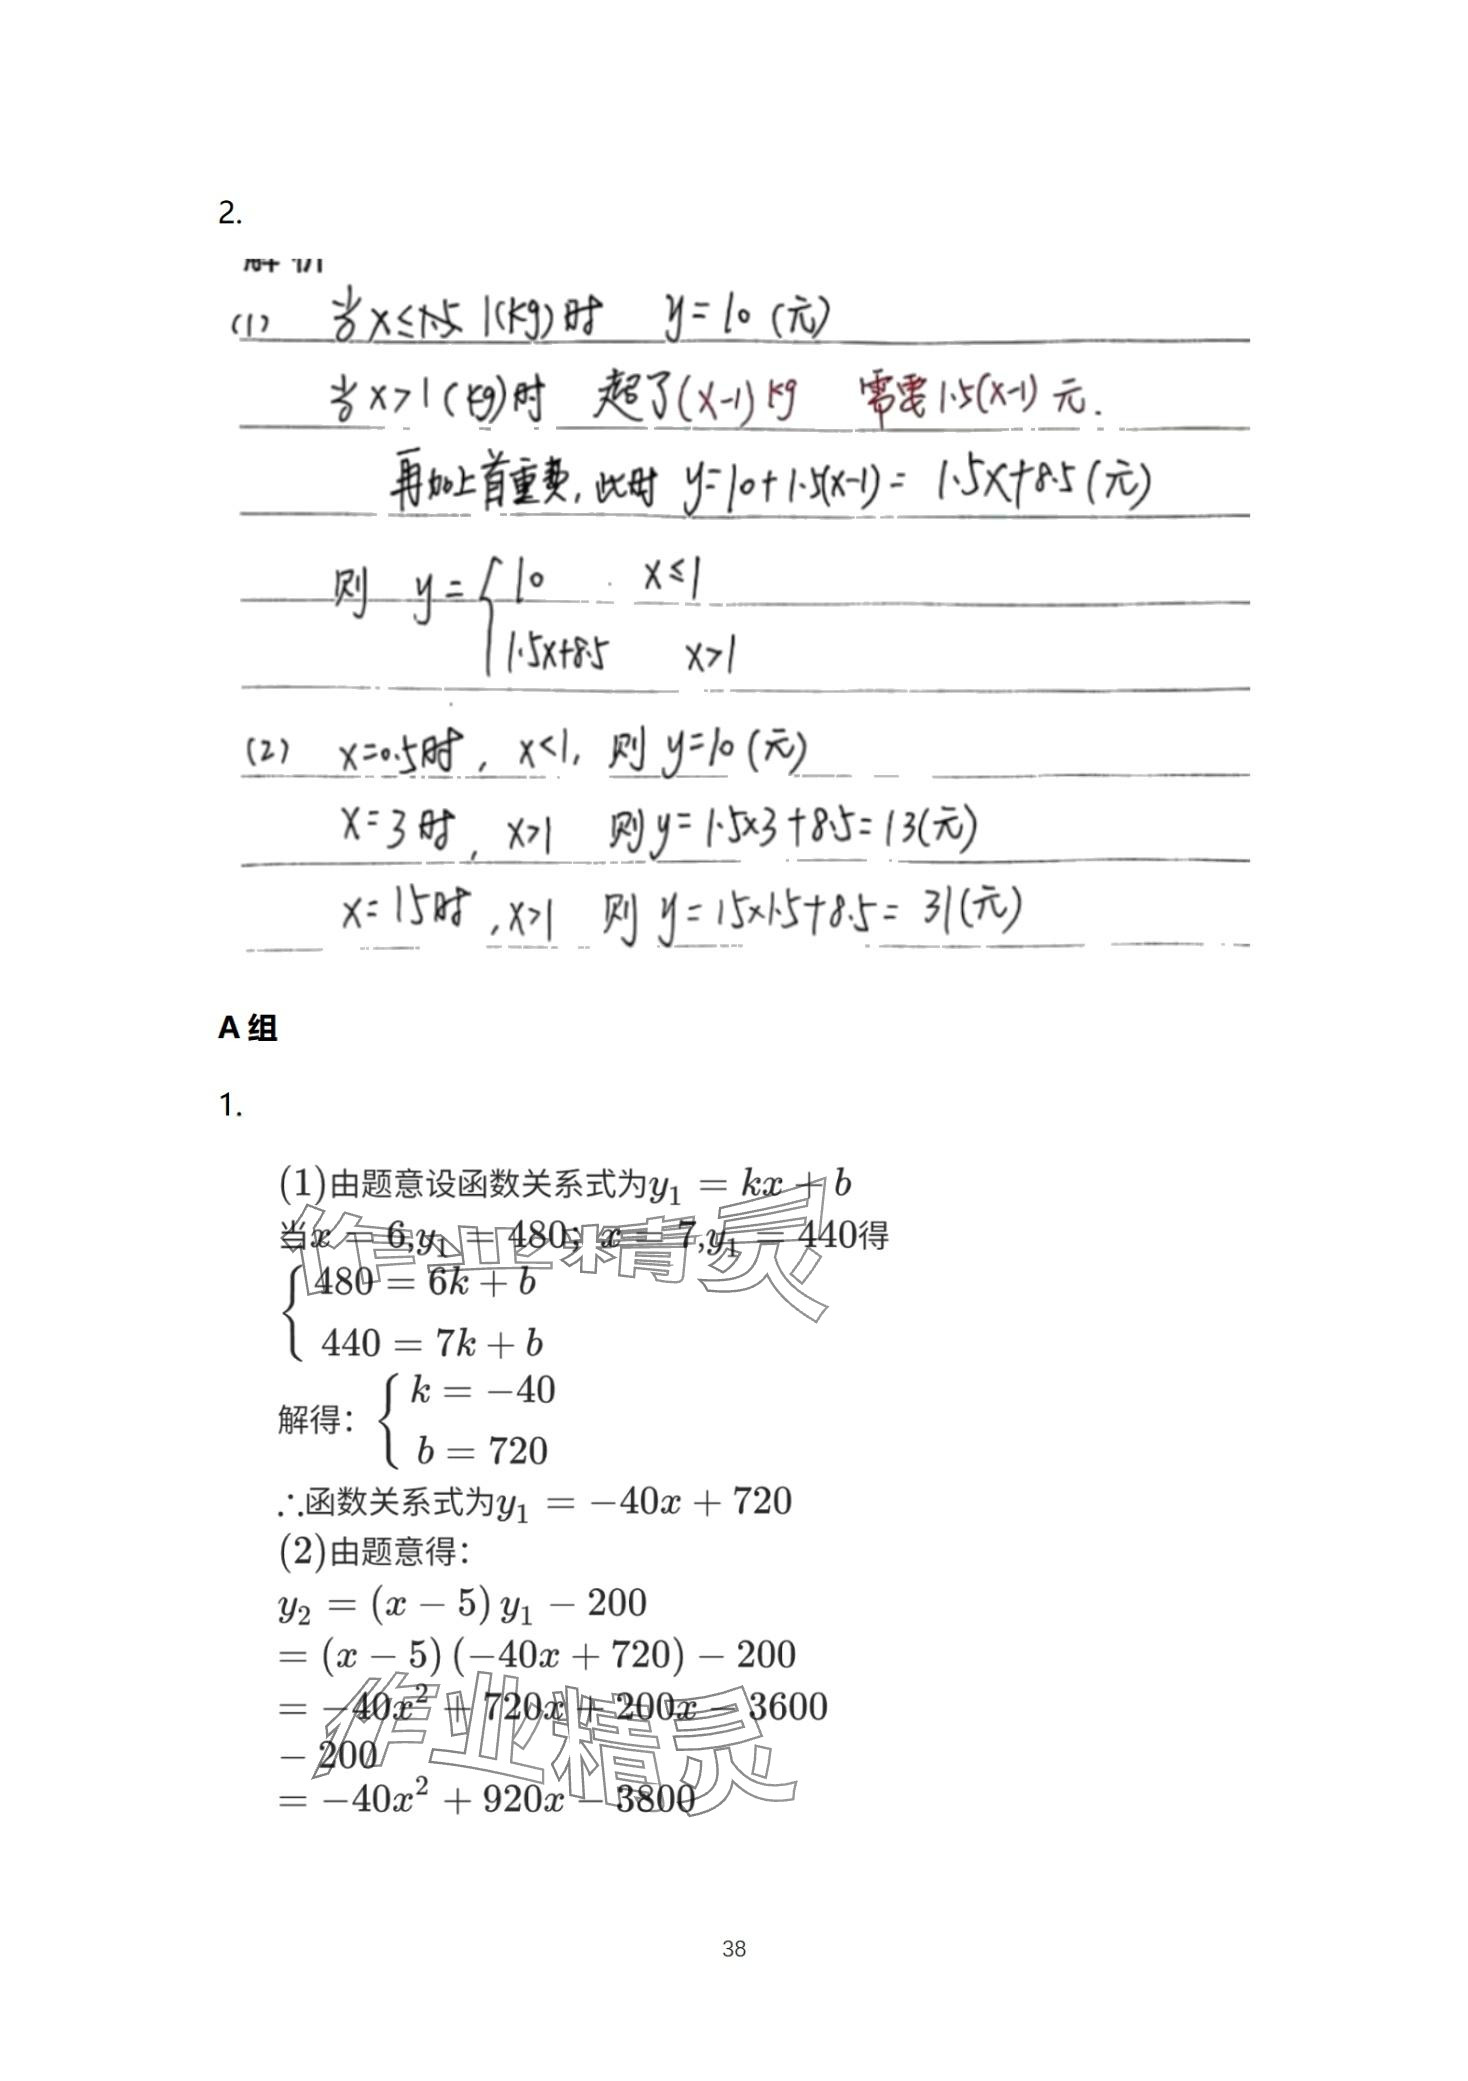 2.
解析
(1) 当x≤1.5 1(kg)时 y=10(元)
当x>1(kg)时 超了(x-1)kg 需要1.5(x-1)元.
再加上首重费,此时 y=10+1.5(x-1)= 1.5x+8.5(元)
则 y={10 x≤1
1.5x+8.5 x>1
(2) x=0.5时, x<1, 则 y=10(元)
x=3时, x>1 则y=1.5×3+8.5=13(元)
x=15时,x>1 则 y=15×1.5+8.5=31(元)
A 组
1.
(1)由题意设函数关系式为y₁ = kx + b
当x = 6,y₁ = 480; x = 7,y₁ = 440得
作业精灵
{480 = 6k + b
440 = 7k + b
解得:{k = −40
b = 720
∴函数关系式为y₁ = −40x + 720
(2)由题意得:
y₂ = (x − 5) y₁ − 200
= (x − 5) (−40x + 720) − 200
= −40x² + 720x + 200x − 3600
作业精灵
− 200
= −40x² + 920x − 3800
38